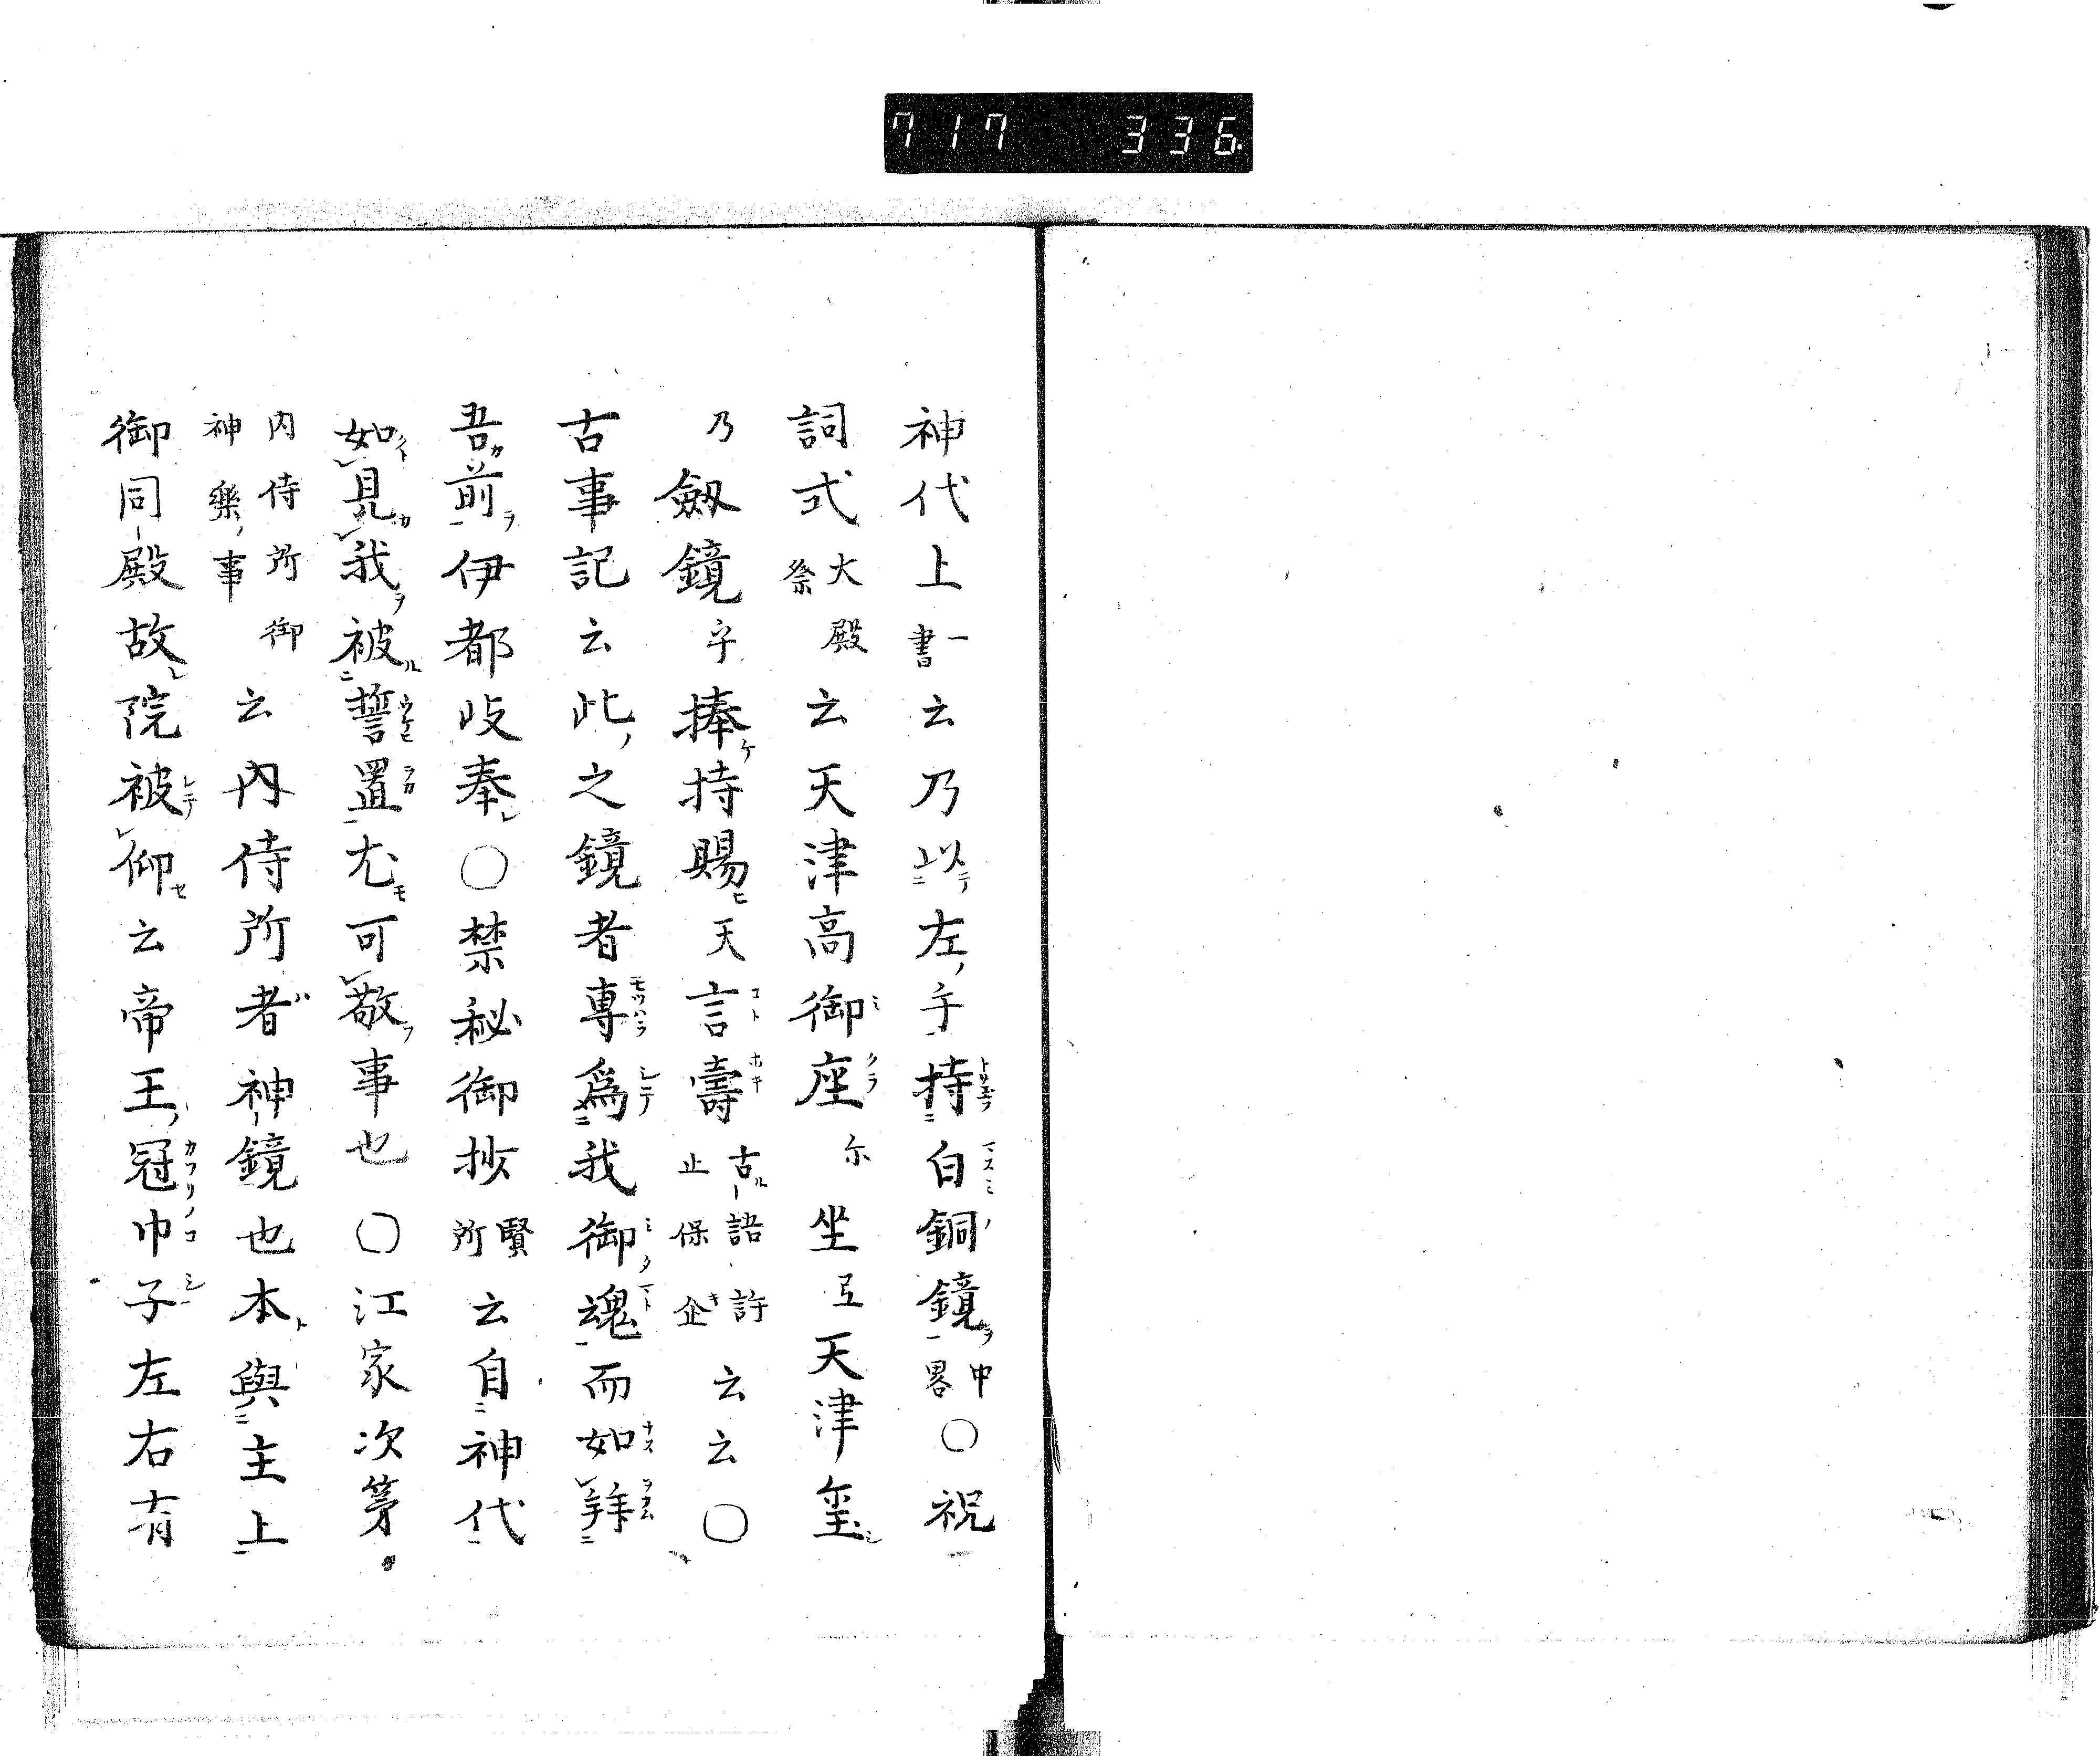 717 336
神代上一書云乃以左手持白銅鏡中畧〇祝
詞式大殿祭云天津高御座尓坐弖天津璽
乃劔鏡乎捧持賜天言壽古語許止保企云云〇
古事記云此之鏡者專爲我御魂而如拜
吾前伊都岐奉〇禁秘御抄賢所云自神代
如見我被誓置尤可敬事也〇江家次第
内侍所御神樂事云内侍所者神鏡也本與主上
御同殿故院被仰云帝王冠巾子左右有